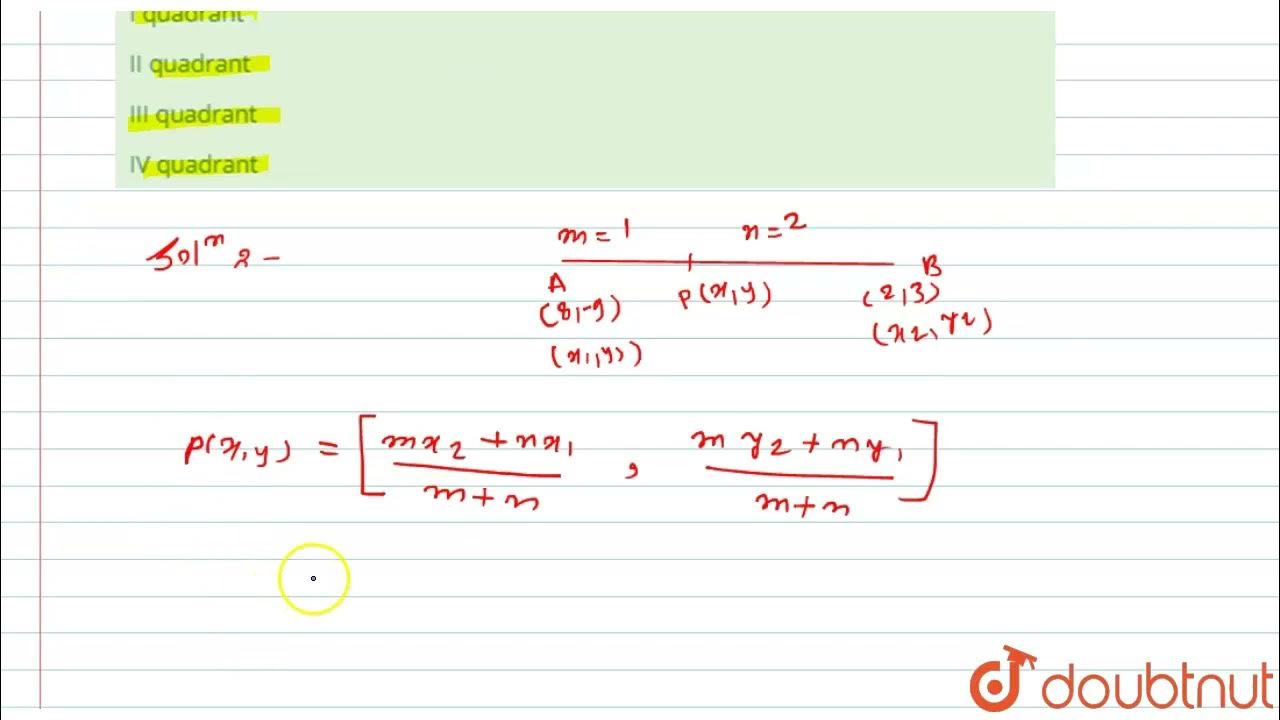 I quadrant
II quadrant
III quadrant
IV quadrant
Solⁿ 2 -
m = 1 n = 2
A P(x,y) B
(8,-9) (2,3)
(x₁,y₁) (x₂,y₂)
P(x,y) = [ (mx₂ + nx₁)/(m+n) , (my₂ + ny₁)/(m+n) ]
doubtnut